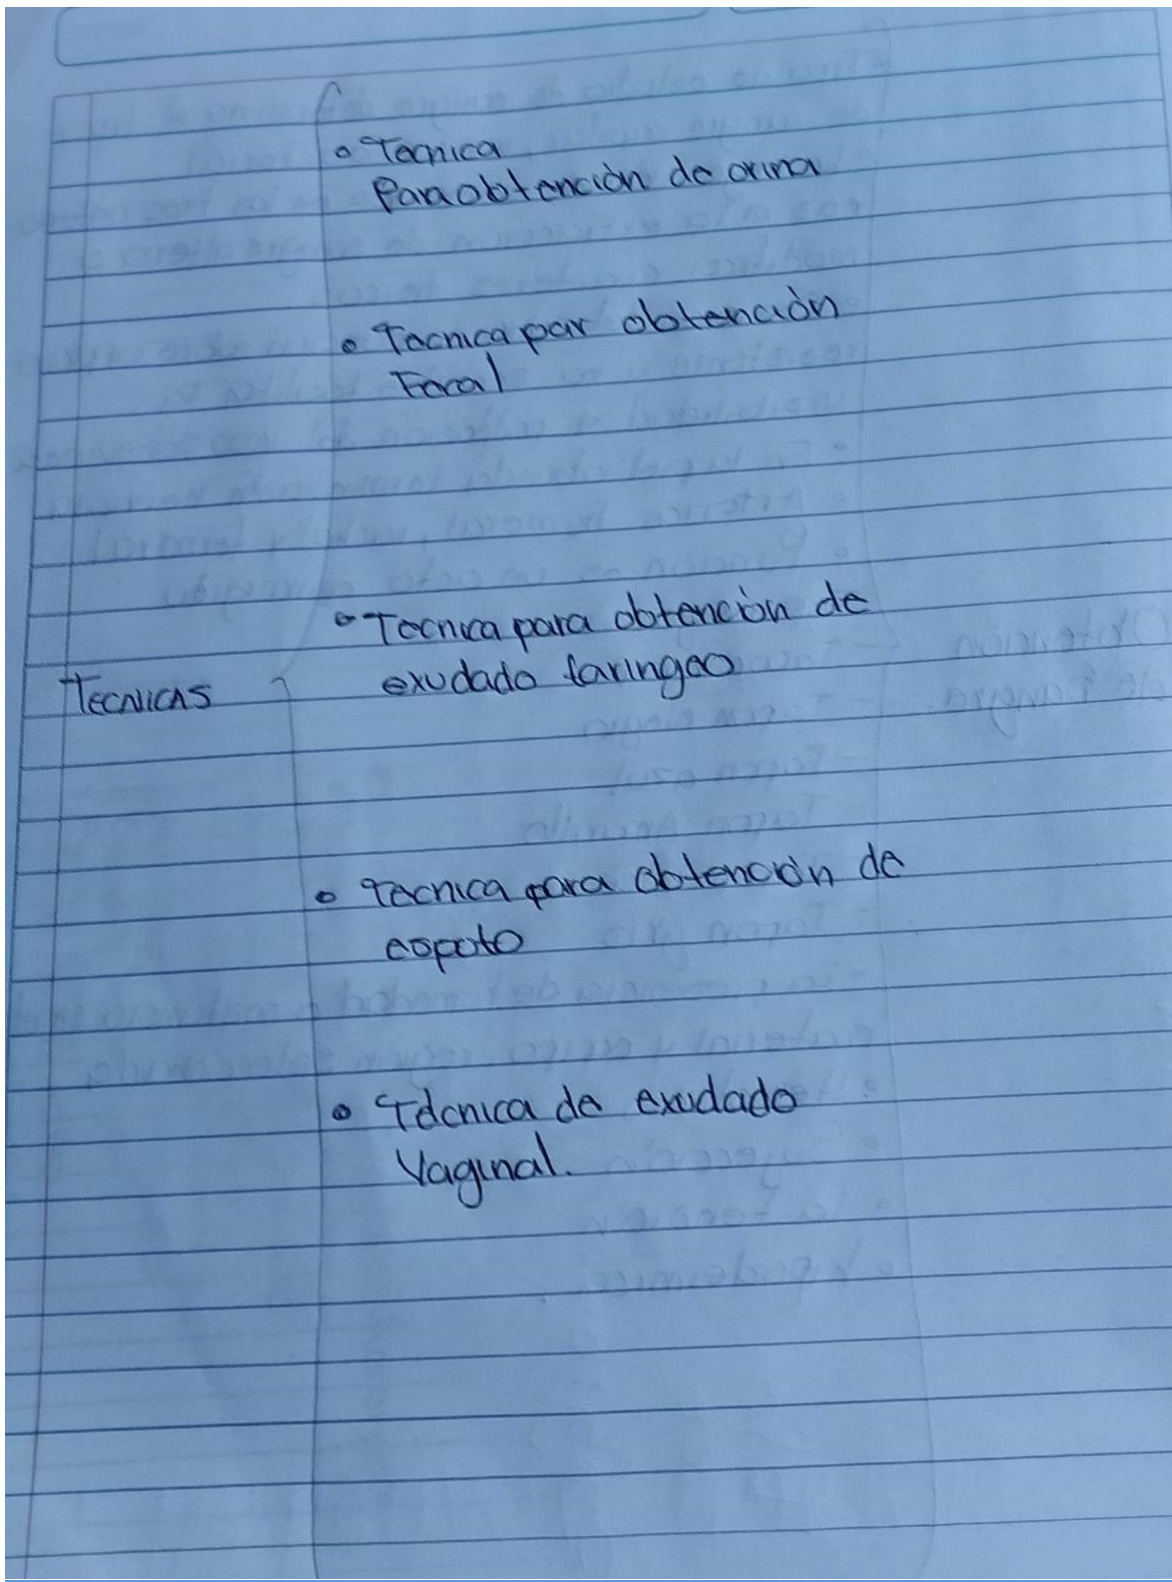 • Tecnica
Para obtención de orina
• Tecnica par obtención
Fecal
• Tecnica para obtención de
exudado faringeo
TECNICAS
• Tecnica para obtención de
esputo
• Técnica de exudado
Vaginal.